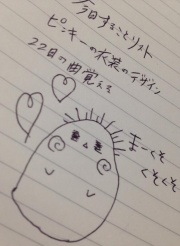 今日することリスト
ピンキーの衣装のデザイン
22日の曲覚える
まーくそ
くそくそ